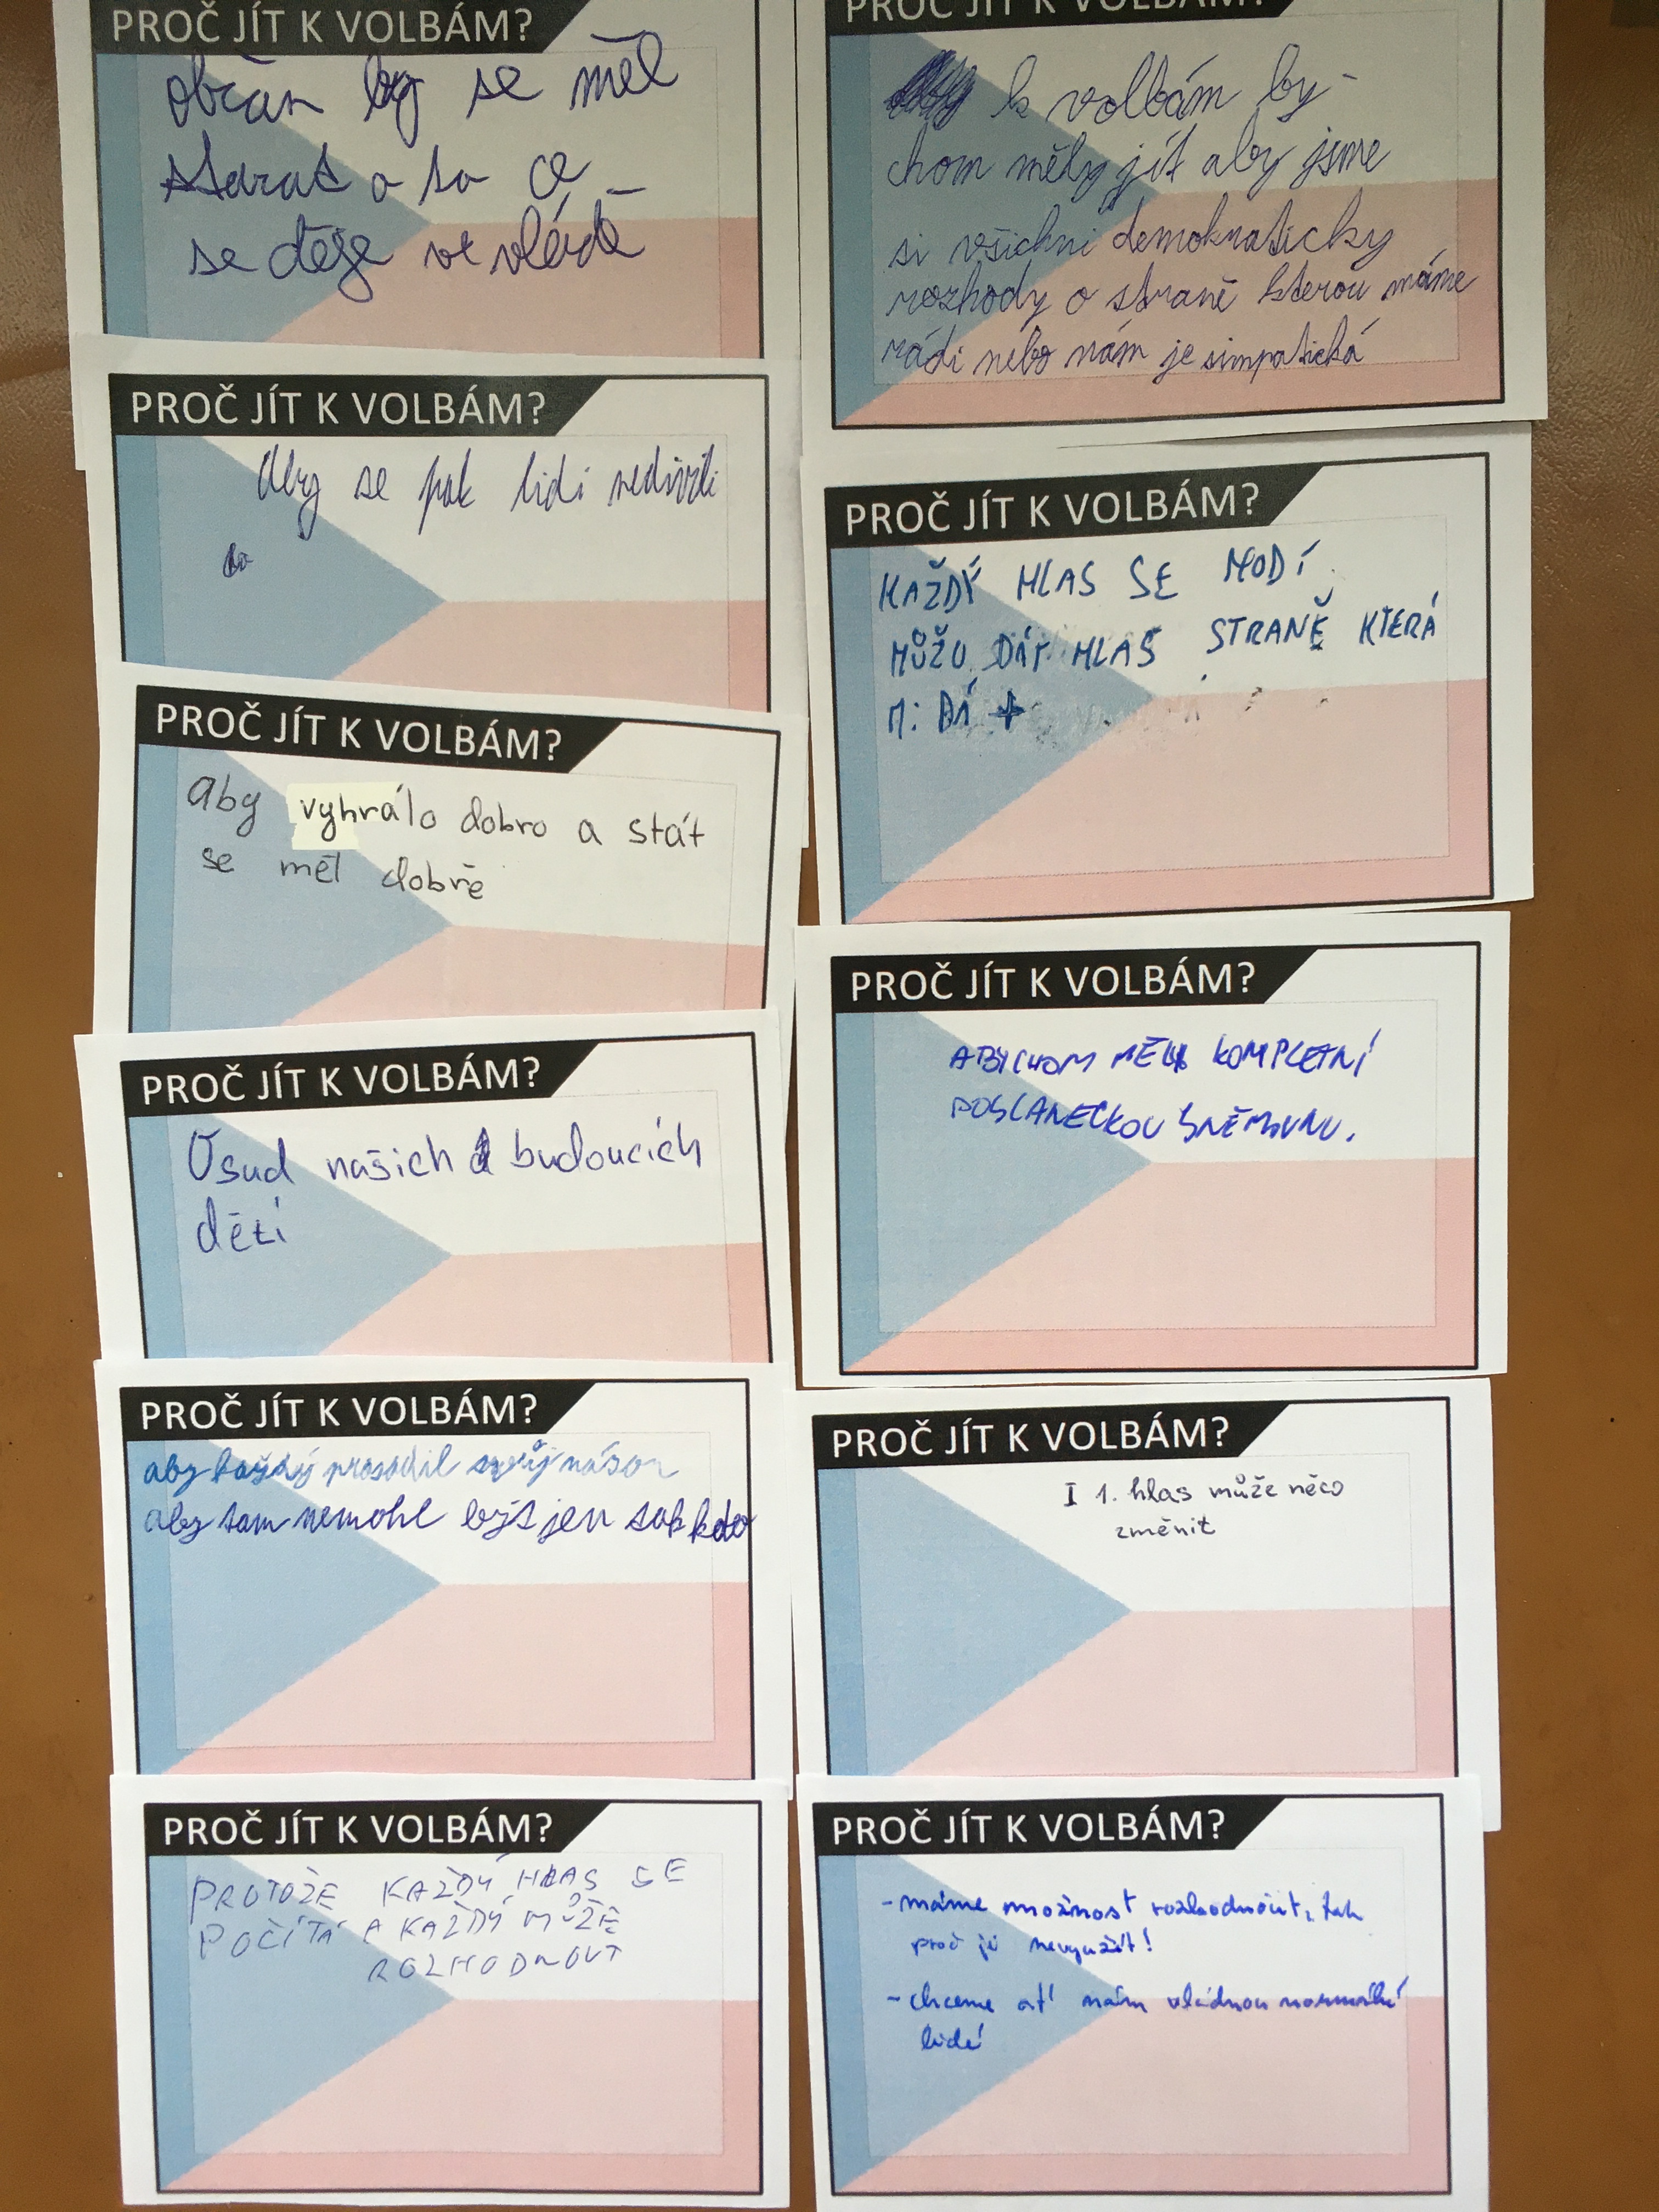 PROČ JÍT K VOLBÁM?
občan by se měl
starat o to co
se děje ve vládě
PROČ JÍT K VOLBÁM?
Aby se pak lidi nedivili
PROČ JÍT K VOLBÁM?
Aby vyhrálo dobro a stát
se měl dobře
PROČ JÍT K VOLBÁM?
Osud našich budoucích
dětí
PROČ JÍT K VOLBÁM?
aby každý prosadil svůj názor
aby tam nemohl být jen tak kdo
PROČ JÍT K VOLBÁM?
PROTOŽE KAŽDÝ HLAS SE
POČÍTÁ A KAŽDÝ MŮŽE
ROZHODNOUT
PROČ JÍT K VOLBÁM?
k volbám by-
chom měly jít aby jsme
si všichni demokraticky
rozhody o straně kterou máme
rádi nebo nám je simpatická
PROČ JÍT K VOLBÁM?
KAŽDÝ HLAS SE HODÍ
MŮŽU DÁT HLAS STRANĚ KTERÁ
MI DÁ +
PROČ JÍT K VOLBÁM?
ABYCHOM MĚLI KOMPLETNÍ
POSLANECKOU SNĚMOVNU.
PROČ JÍT K VOLBÁM?
I 1. hlas může něco
změnit
PROČ JÍT K VOLBÁM?
- máme možnost rozhodnout, tak
proč ji nevyužít!
- chceme ať nám vládnou normální
lidé